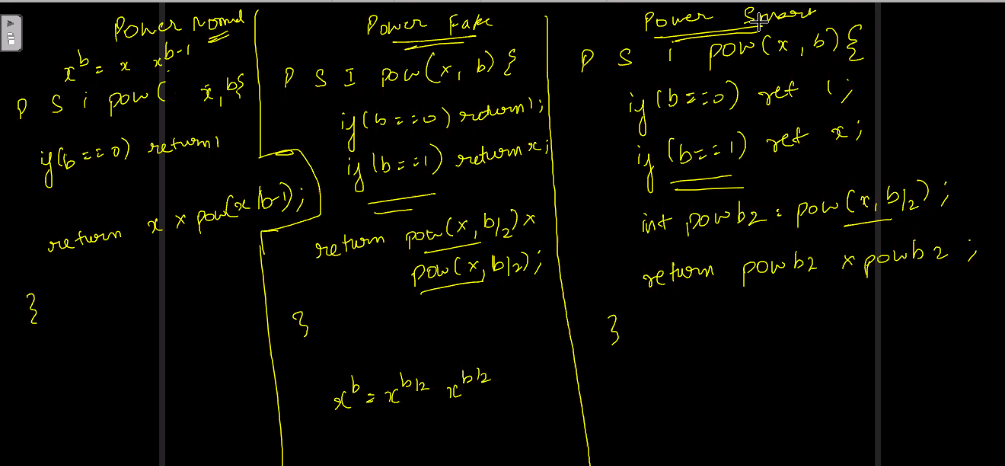 Power Normal
x^b = x x^b-1
P S i pow( x, b){
if(b==0) return 1
return x × pow(x, b-1);
}
Power Fake
P S I pow(x, b){
if(b==0) return 1;
if(b==1) return x;
return pow(x, b/2) ×
pow(x, b/2);
}
x^b = x^b/2 x^b/2
Power Smart
P S i pow(x, b){
if(b==0) ret 1;
if(b==1) ret x;
int powb2 = pow(x, b/2);
return powb2 × powb2;
}